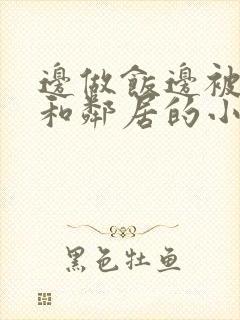 邊做飯邊被
和鄰居的小
黑色牡鱼